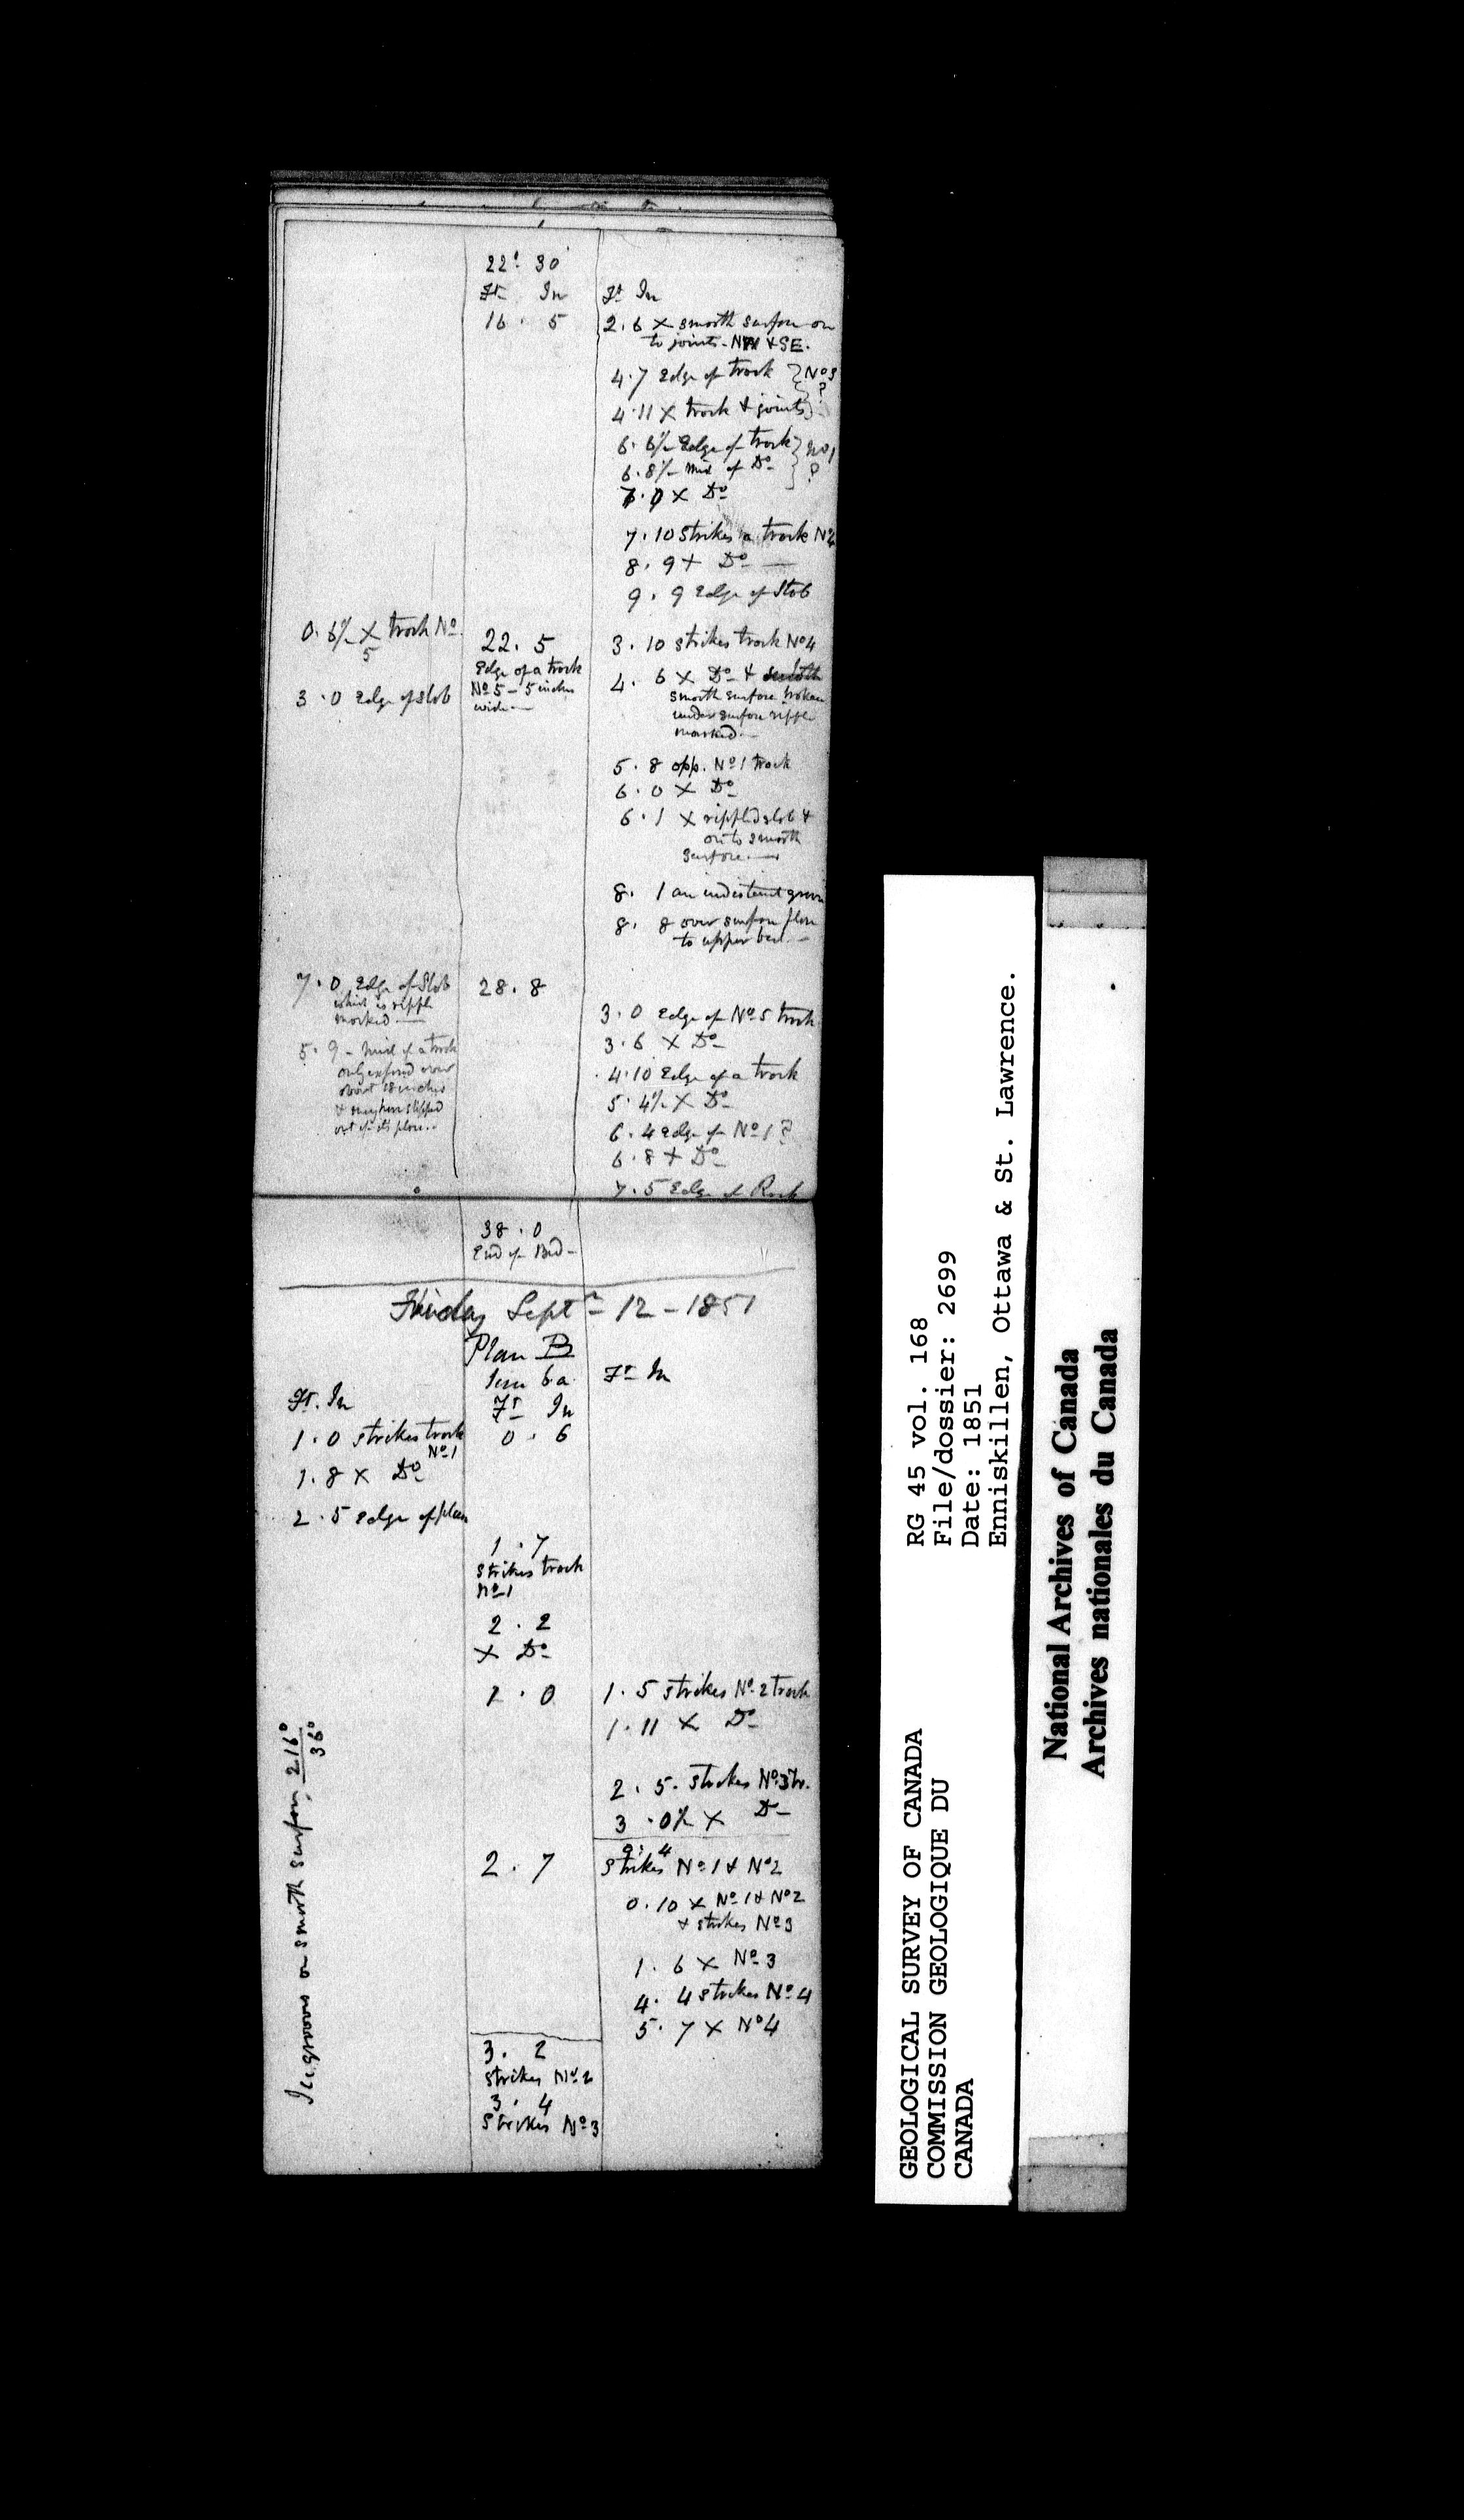 22° 30'
Ft In
Ft In
16 . 5
2 . 6 X smooth surface on
to joints - NW & SE.
4 . 7 Edge of track } No 3
?
4 . 11 X track & joints
6 . 6½ Edge of track } No 1
6 . 8½ Mid of Do ?
7 . 0 X Do
7 . 10 Strikes a track No 4
8 . 9 X Do —
9 . 9 Edge of Slab
0 . 6½ X track No
5
22 . 5
Edge of a track
No 5 - 5 inches
wide —
3 . 0 Edge of slab
3 . 10 strikes track No 4
4 . 6 X Do &
smooth surface broken
under surface ripple
marked —
5 . 8 opp. No 1 track
6 . 0 X Do
6 . 1 X rippled slab &
on to smooth
surface —
8 . 1 an indistinct groove
8 . 8 over surface place
to upper bed —
7 . 0 Edge of Slab
which is ripple
marked —
28 . 8
5 . 9 - Mid of a track
only exposed over
about 18 inches
& may have slipped
out of its place —
3 . 0 Edge of No 5 track
3 . 6 X Do
4 . 10 Edge of a track
5 . 4½ X Do
6 . 4 edge of No 1 ?
6 . 8 X Do
7 . 5 Edge of Rock
38 . 0
End of Bed -
Friday Septr 12 - 1851
Plan B
6 a
Ft . In
Ft In
Ft In
1 . 0 strikes track
No 1
0 . 6
1 . 8 X Do
2 . 5 edge of place
1 . 7
Strikes track
No 1
2 . 2
X Do
1 . 0
1 . 5 strikes No 2 track
1 . 11 X Do
2 . 5 . strikes No 3 tr.
3 . 0½ X Do
2 . 7
0 . 4
Strikes No 1 & No 2
0 . 10 X No 1 & No 2
& strikes No 3
1 . 6 X No 3
4 . 4 strikes No 4
5 . 7 X No 4
3 . 2
strikes No 2
3 . 4
Strikes No 3
Ice grooves on smooth surface 216°
36°
GEOLOGICAL SURVEY OF CANADA
COMMISSION GEOLOGIQUE DU
CANADA
RG 45 vol. 168
File/dossier: 2699
Date: 1851
Enniskillen, Ottawa & St. Lawrence.
National Archives of Canada
Archives nationales du Canada